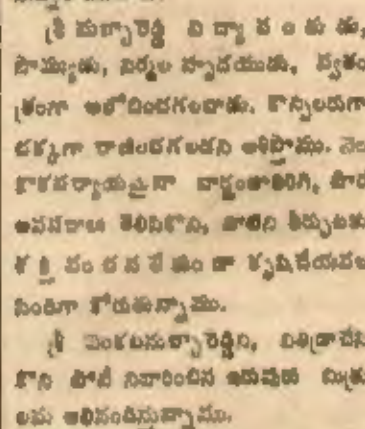 శ్రీ సుబ్బారెడ్డి వి ద్యా వ ం తు డు,
సౌమ్యుడు, నిర్మల హృదయుడు, స్వతం
త్రంగా ఆలోచించగలవాడు. కౌన్సిలరుగా
చక్కగా రాణించగలడని ఆశిస్తాము. నెల
కొకపర్యాయమైనా వార్డంతాతిరిగి, పౌర
అవసరాలు తెలిసికొని, వాటిని తీర్చుటకు
శ క్తి వం చ న లే కుం డా కృషిచేయవల
సిందిగా కోరుతున్నాము.
శ్రీ వెంకటసుబ్బారెడ్డిని,
కొని పోటీ నివారించిన ఇరువురు మిత్రు
లను అభినందిస్తున్నాము.